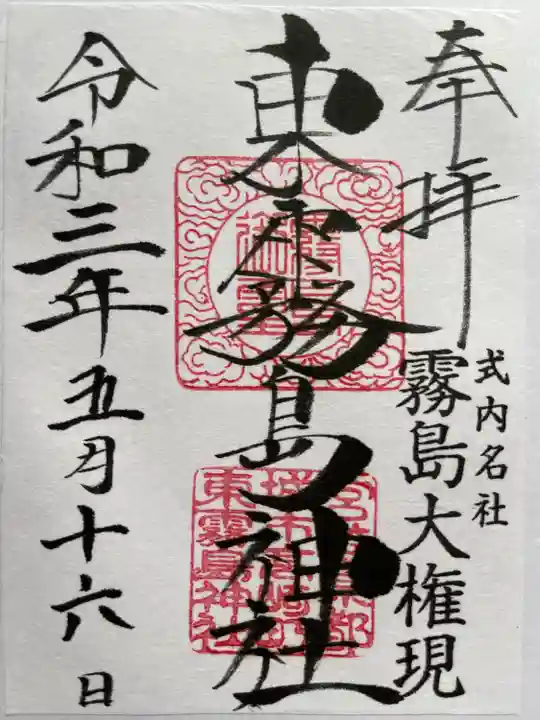 奉拝
式内名社
霧島大権現
東霧島神社
東霧島神社
令和三年五月十六日